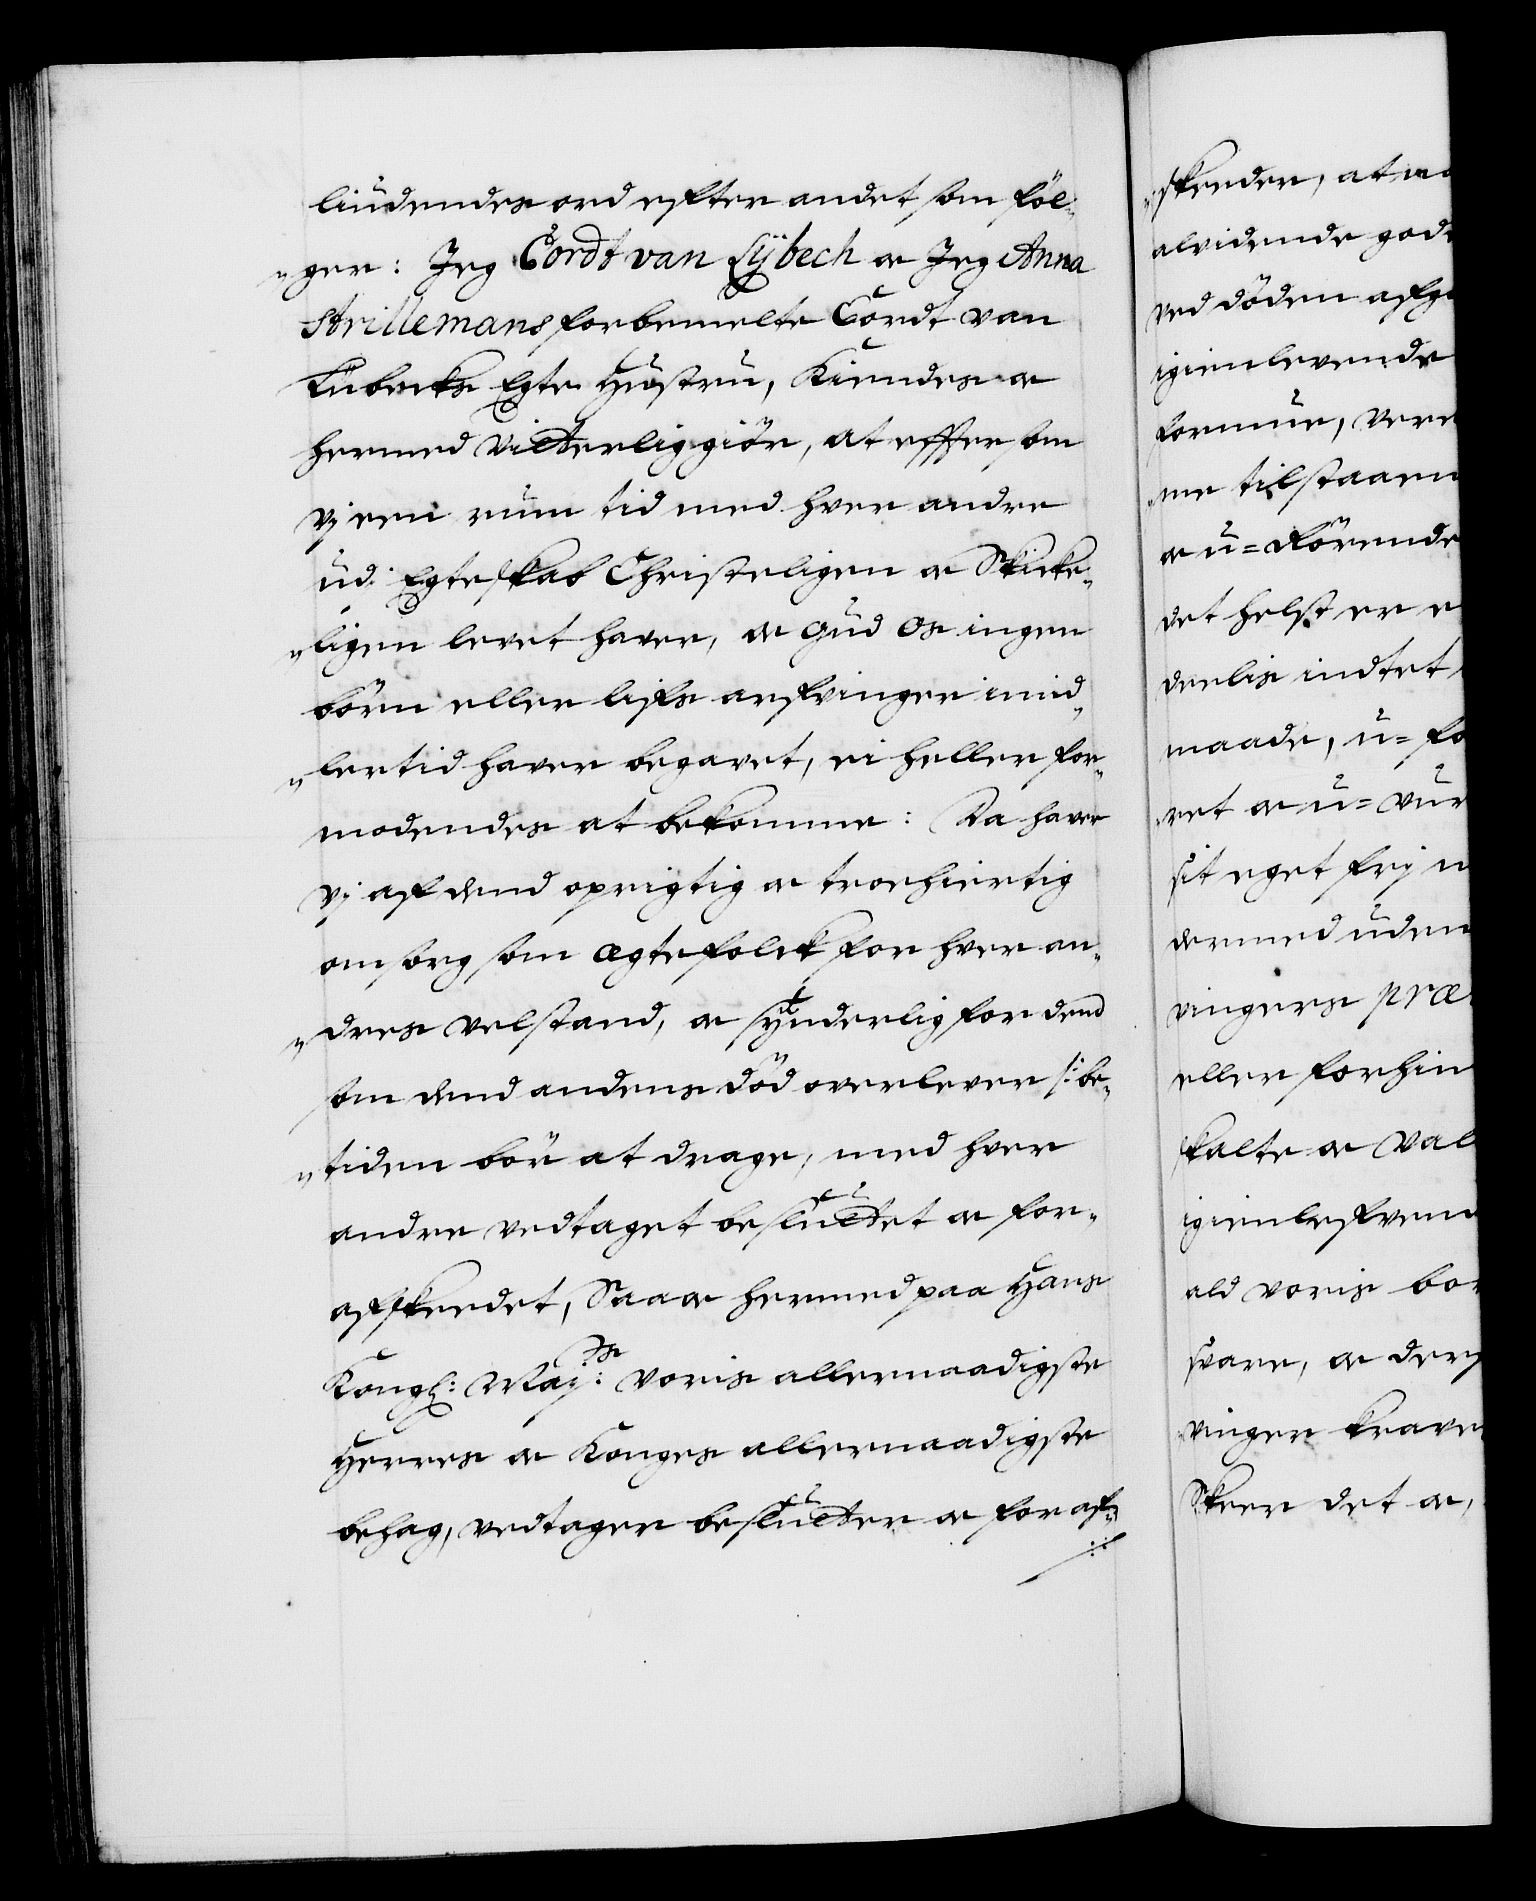 liudendes ord efter andet som föl-
"ger: Jeg Cordt van Lÿbech oc Jeg Anna
Strillemans forbemelte Cordt van
Lübecks Egte Hustru, Kiendes oc
hermed Vitterliggiör, at effter som
Vj een rum tid med hver andre
udi Egteskab Christeligen oc Skicke-
"ligen levet haver, oc Gud os ingen
börn eller lifs arfvinger imid-
"lertid haver begavet, ei heller for-
modendes at bekomme: Da haver
Vj af dend oprigtig oc troehiertig
omsorg som ægtefolck for hver an-
"dres velstand, oc sÿnderlig for dend
som dend andens död overlever /: be-
"tiden bör at drage, med hver
andre vedtaget besluttet oc for-
afskeedet, Saa oc hermed paa Hans
Kongl: Maj:ts voris allernaadigste
Herres oc Konges allernaadigste
behag, vedtager beslutter oc foraf-
"skeeder, at
alvidende gode
ved döden afg
igienlevende
formue, vere
"me tilstaaen
oc u=rörende
det helst er e
deelis indtet
maade, u=fo
"ret oc u=vur
sit eget frj
dermed uden
vingers præ
eller forhin
skalte oc val
igienlefvend
ald voris bo
svare, oc der
vinger krave
Skeer det oc,